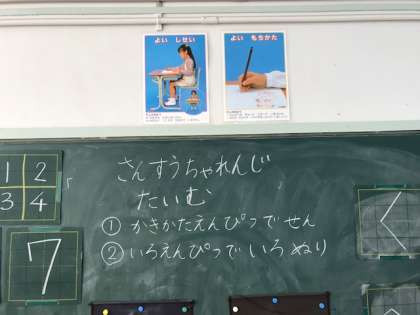 よい しせい
よい もちかた
さんすうちゃれんじ
たいむ
① かきかたえんぴつで せん
② いろえんぴつで いろ ぬり
1 2
3 4
7
く